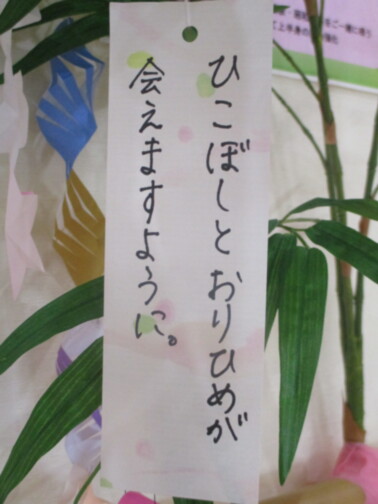 ひこぼしとおりひめが
会えますように。